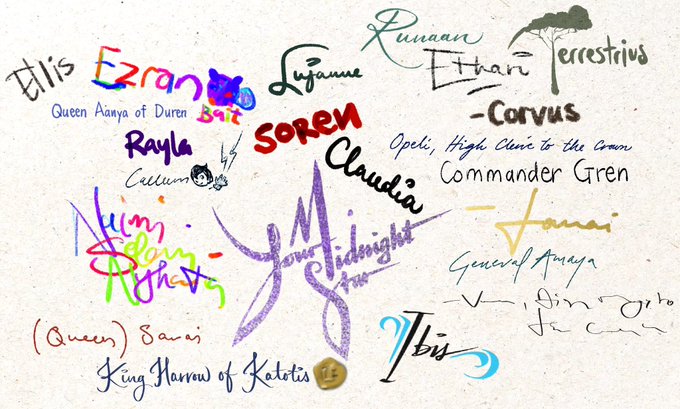 Runaan
Ellis
Ezran
Lujanne
Ethari
Terrestrius
Queen Aanya of Duren
Bait
Soren
-Corvus
Rayla
Opeli, High Cleric to the Crown
Callum
Claudia
Commander Gren
Nuimi-
Selom-
Nyhata
Your Midnight
Star
M
-Janai
General Amaya
(Queen) Sarai
Ibis
King Harrow of Katolis